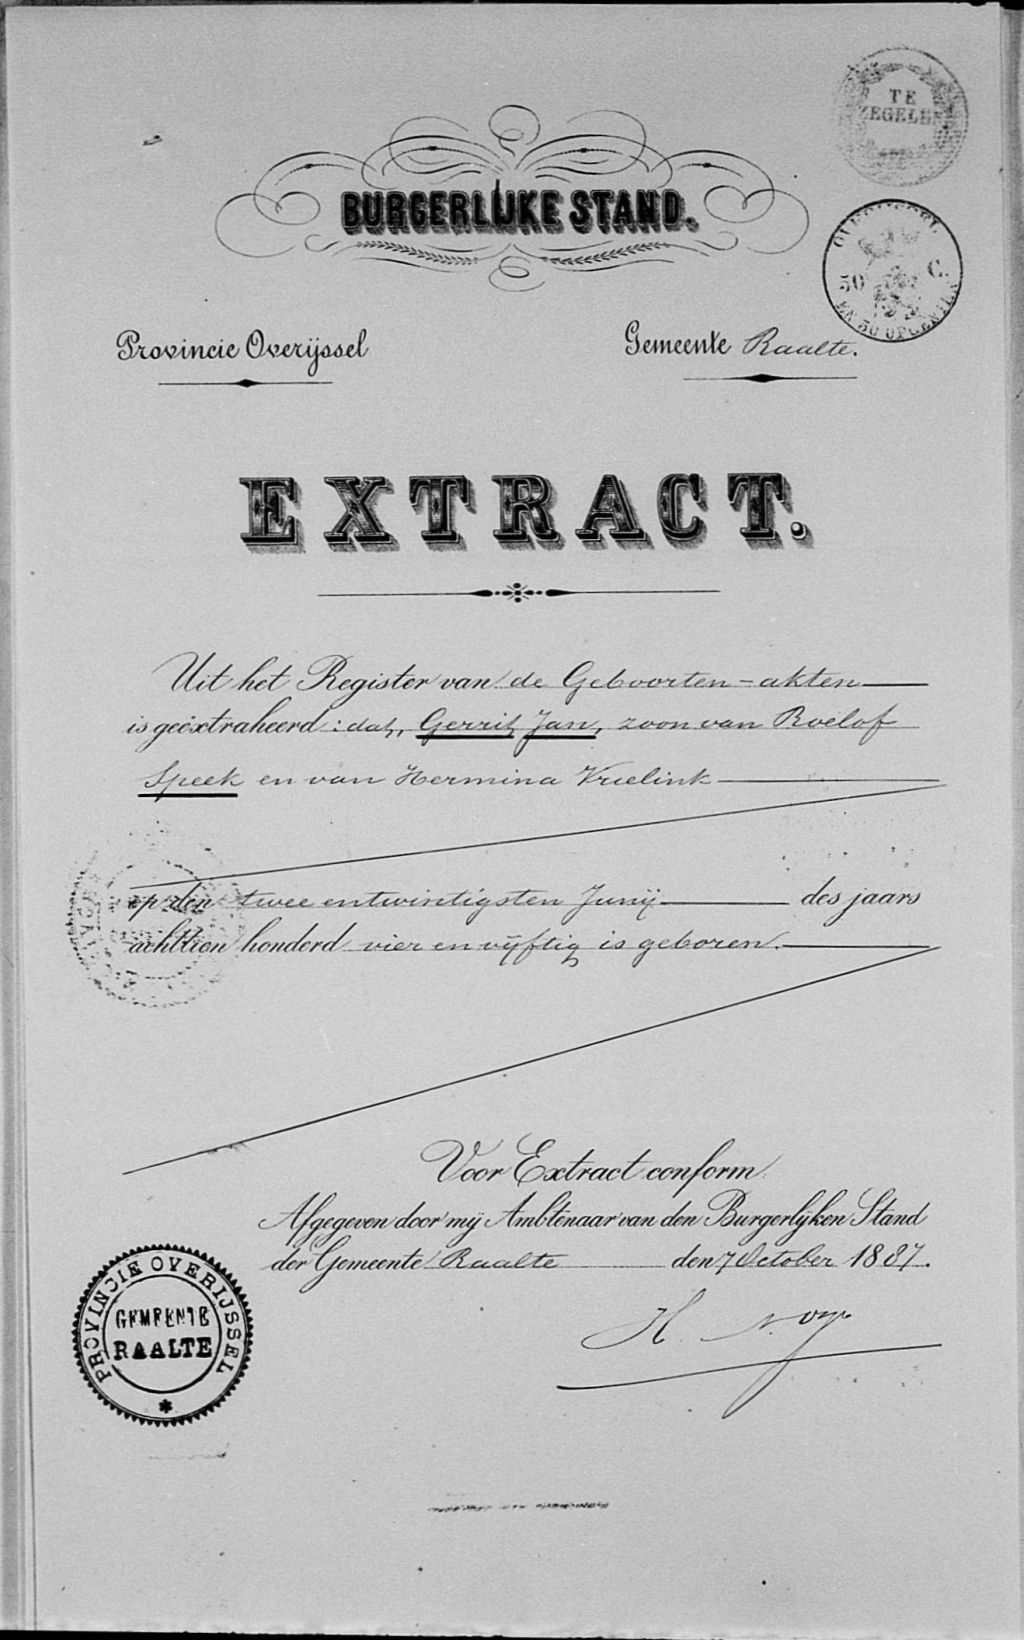 TE
ZEGELEN
BURGERLIJKE STAND.
OVERIJSSEL.
50 C.
EN 50 OPCENTEN
Provincie Overijssel
Gemeente Raalte.
EXTRACT.
Uit het Register van de Geboorten-akten
is geëxtraheerd: dat, Gerrit Jan, zoon van Roelof
Speek en van Hermina Vrielink
op den twee entwintigsten Junij des jaars
achttien honderd vier en vijftig is geboren.
Voor Extract conform.
Afgegeven door mij Ambtenaar van den Burgerlijken Stand
der Gemeente Raalte den 7 October 1887.
H
PROVINCIE OVERIJSSEL
GEMEENTE
RAALTE